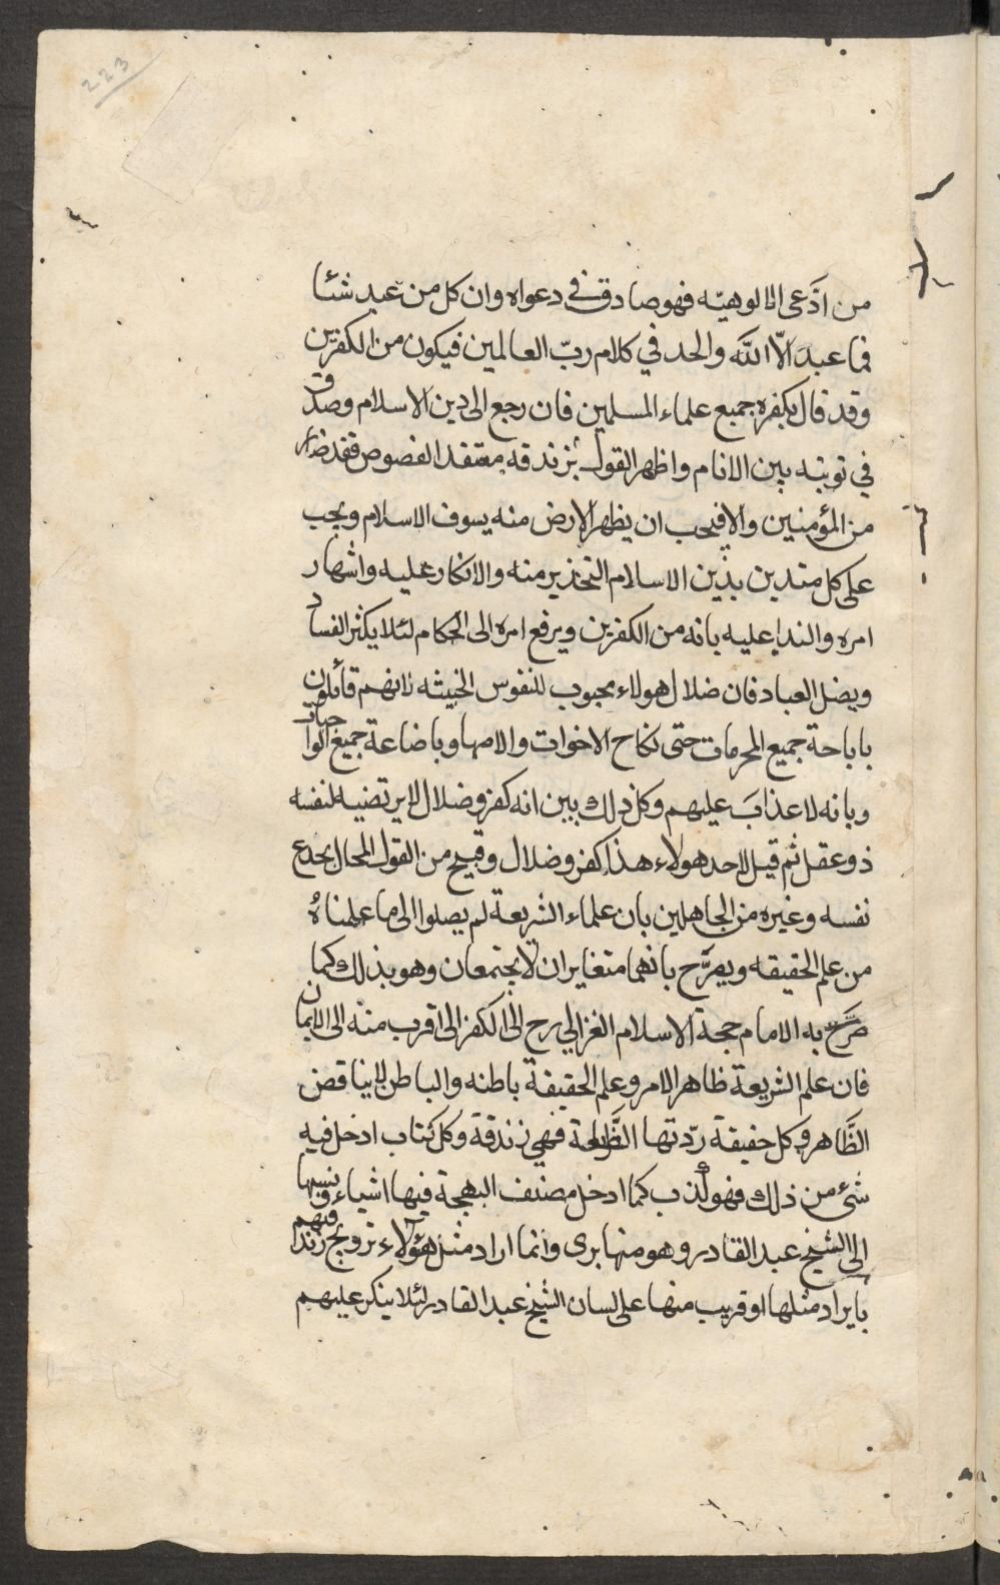 223
من ادّعى الالوهيّه فهو صادق في دعواه وان كل من عبد شئا
فما عبد الّا اللّه والحد في كلام ربّ العالمين فيكون من الكفرين
وقد قال بكفره جميع علماء المسلمين فان رجع الى دين الاسلام وصدق
في توبته بين الانام واظهر القول بزندقه معتقد الفصوص فقد صار
من المؤمنين والا فيجب ان يطهر الارض منه بسوف الاسلام ويجب
على كل متدين بدين الاسلام التحذير منه والانكار عليه واشهار
امره والندا عليه بانه من الكفرين ويرفع امره الى الحكام لئلا يكثر الفساد
ويضل العباد فان ضلال هولاء محبوب للنفوس الخبيثه لانهم قائلون
باباحة جميع المحرمات حتى نكاح الاخوات والامها وباضاعة جميع الواجبات
وبانه لا عذابَ عليهم وكل ذلك بين انه كفر وضلال لا يرتضيه لنفسه
ذو عقل ثم قيل لاحد هولاء هذا كفر وضلال وقبيح من القول المحال يخدع
نفسه وغيره من الجاهلين بان علماء الشريعة لم يصلوا الى ما علمناهُ
من علم الحقيقه ويصرّح بانهما متغايران لا يجتمعان وهو بذلك كما
صرّح به الامام حجة الاسلام الغزالي رح الى الكفر الى اقرب منه الى الايمان
فان علم الشريعة ظاهر الامر وعلم الحقيقة باطنه والباطن لا يناقض
الظَّاهر وكل حقيقة ردّتها الظَّاهرة فهي زندقة وكل كتاب ادخل فيه
شئ من ذلك فهو كذب كما ادخل مصنف البهجة فيها اشياء ونسبها
الى الشيخ عبد القادر وهو منها برى وانما اراد مثل هؤلاء ترويج زندا قيهم
بايراد مثلها او قريب منها على لسان الشيخ عبد القادر لئلا ينكر عليهم